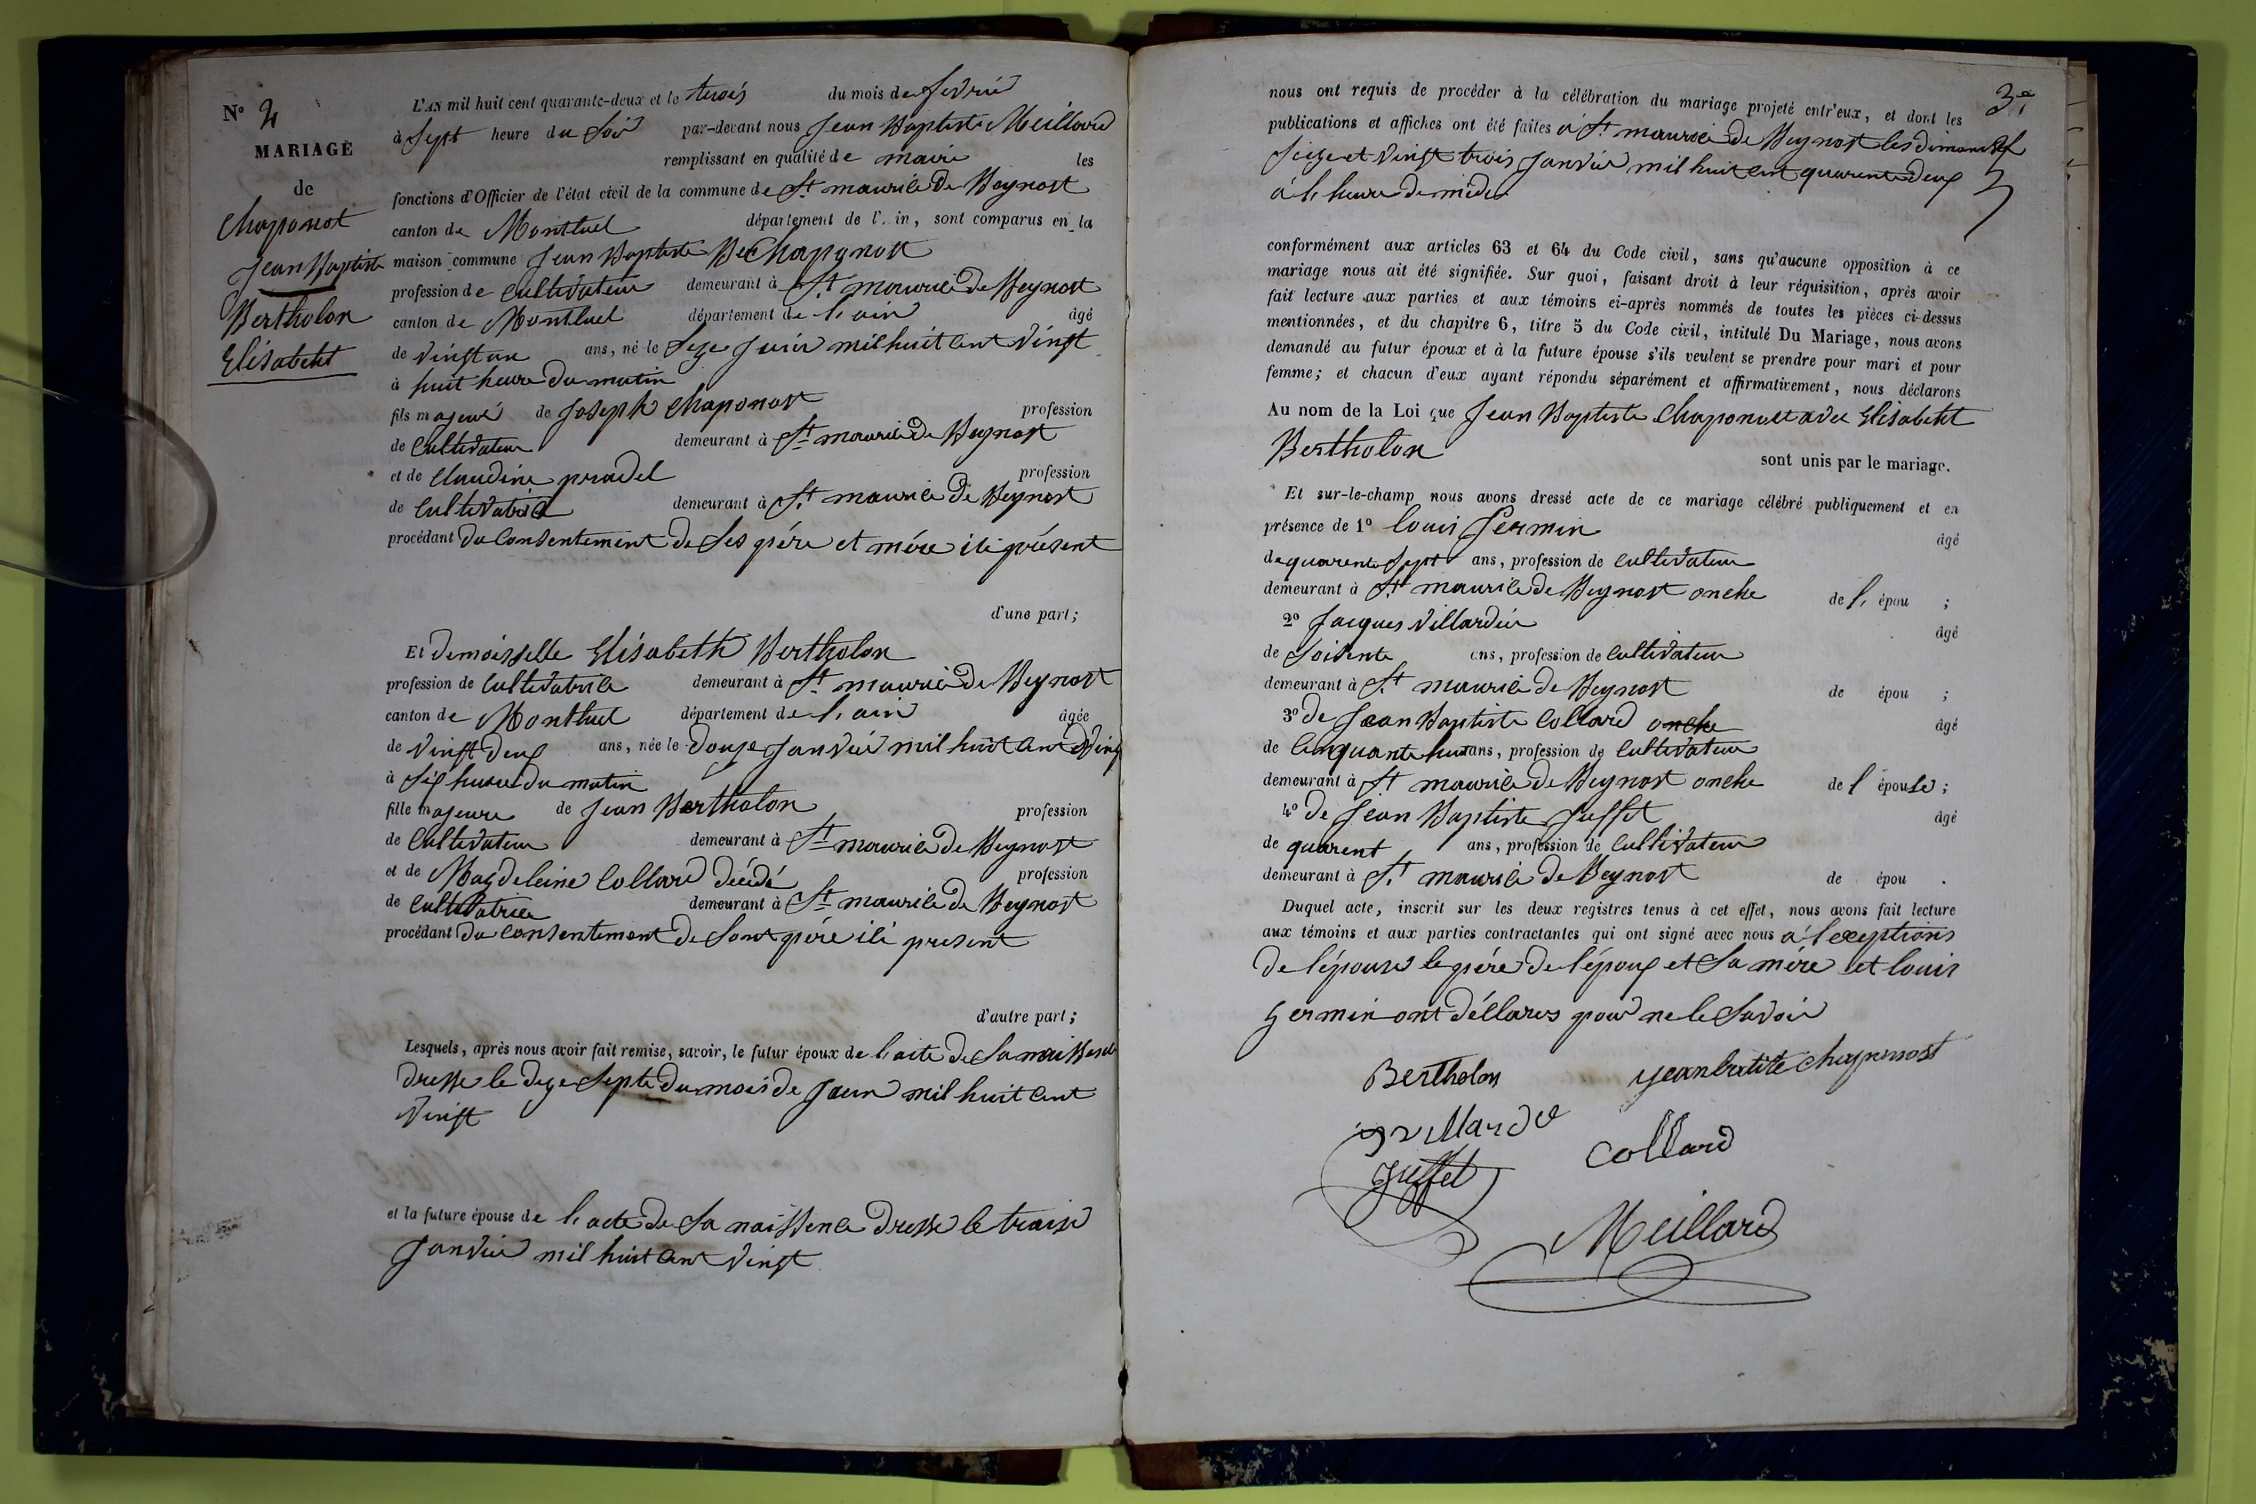 N° 2
MARIAGE
de
Chaponot
Jean Baptiste
Bertholon
Elisabeht
L'AN mil huit cent quarante-deux et le trois du mois de fevrié
à Sept heure du Soir par-devant nous Jean Baptiste Meillard
remplissant en qualité de maire les
fonctions d'Officier de l'état civil de la commune de St maurice De Beynost
canton de Montluel département de l'Ain, sont comparus en la
maison commune Jean Baptiste Chaponost
profession de Cultivateur demeurant à St maurice de Beynost
canton de Montluel département de l'ain âgé
de vingt un ans, né le Seze Juin mil huit cent vingt
à huit heure du matin
fils majeur de Joseph Chaponost profession
de Cultivateur demeurant à St maurice de Beynost
et de Claudine pradel profession
de Cultivatrice demeurant à St maurice de Beynost
procédant du Consentement de Ses pére et mére ici présent
d'une part;
Et Demoisselle Elisabeth Bertholon
profession de Cultivatrice demeurant à St maurice de Beynost
canton de Montluel département de l'ain âgée
de vingt deux ans, née le douze Janvier mil huit cent Vingt
à Six heure du matin
fille majeure de Jean Bertholon profession
de Cultivateur demeurant à St maurice de Beynost
et de Magdeleine Collard décédé profession
de Cultivatrice demeurant à St maurice de Beynost
procédant du Consentement de Sont pére ici present
d'autre part;
Lesquels, après nous avoir fait remise, savoir, le futur époux de l'acte de Sa naissence
dresse le dize Septe du mois de Juin mil huit cent
vingt
et la future épouse de l'acte de Sa naissence dresse le traise
Janvier mil huit cent vingt
3e
nous ont requis de procéder à la célébration du mariage projeté entr'eux, et dont les
publications et affiches ont été faites à St maurice de Beynost les dimanches
Seize et vingt trois Janvier mil huit cent quarente deux
à l'heure de midi
conformément aux articles 63 et 64 du Code civil, sans qu'aucune opposition à ce
mariage nous ait été signifiée. Sur quoi, faisant droit à leur réquisition, après avoir
fait lecture aux parties et aux témoins ci-après nommés de toutes les pièces ci-dessus
mentionnées, et du chapitre 6, titre 5 du Code civil, intitulé Du Mariage, nous avons
demandé au futur époux et à la future épouse s'ils veulent se prendre pour mari et pour
femme; et chacun d'eux ayant répondu séparément et affirmativement, nous déclarons
Au nom de la Loi que Jean Baptiste Chaponost avec Elisabeht
Bertholon sont unis par le mariage.
Et sur-le-champ nous avons dressé acte de ce mariage célébré publiquement et en
présence de 1° Louis Germin âgé
de quarente Sept ans, profession de Cultivateur
demeurant à St maurice de Beynost oncle de l'épou ;
2° Jacques Villardier âgé
de Soisente ans, profession de Cultivateur
demeurant à St maurice de Beynost de épou ;
3° de Jean Baptiste Collard oncle âgé
de Cinquante huit ans, profession de Cultivateur
demeurant à St maurice de Beynost oncle de l'épouse;
4° de Jean Baptiste Juffet âgé
de quarent ans, profession de Cultivateur
demeurant à St maurice de Beynost de épou .
Duquel acte, inscrit sur les deux registres tenus à cet effet, nous avons fait lecture
aux témoins et aux parties contractantes qui ont signé avec nous à l'exceptions
de l'épouse le pére de l'époux et Sa mére et louis
germin ont déllares pour ne le Savoir
Bertholon jeanbatiste chaponost
Juffet Collard
Meillard